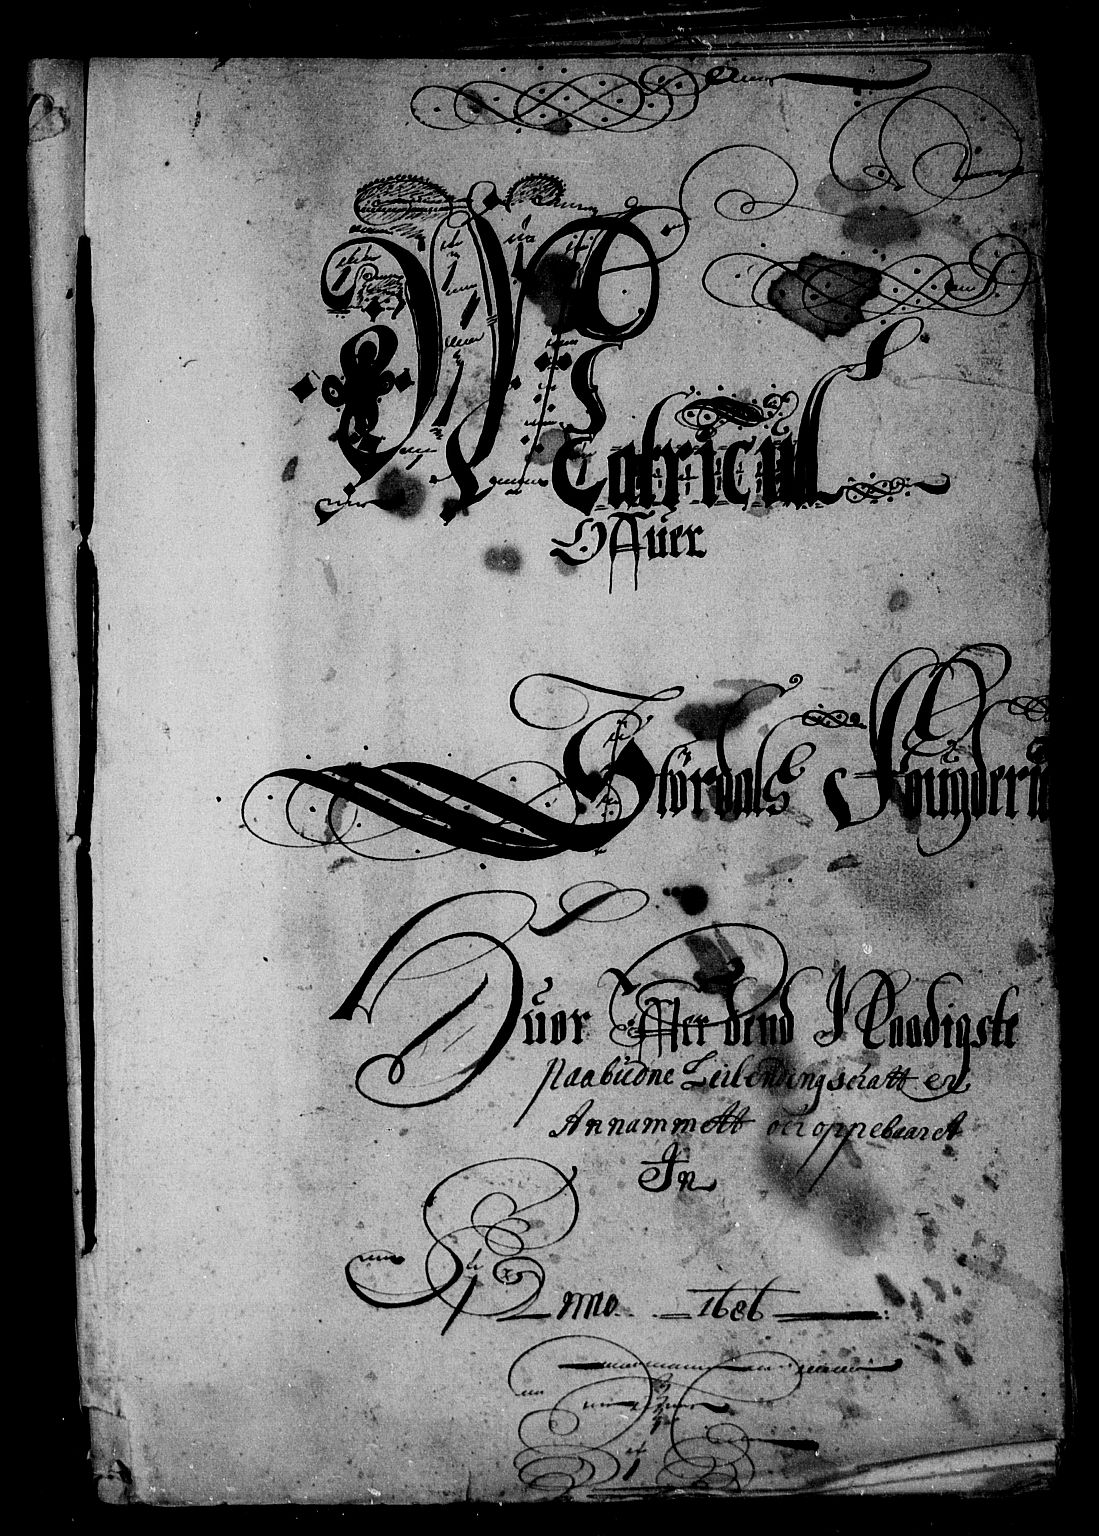 Matricul
Offuer
Størdals Fougderii
Huor Effter dend I Naadigste
Paabudne Leilendingschatt er
Annammett och oppebaaret
In
Anno 1686